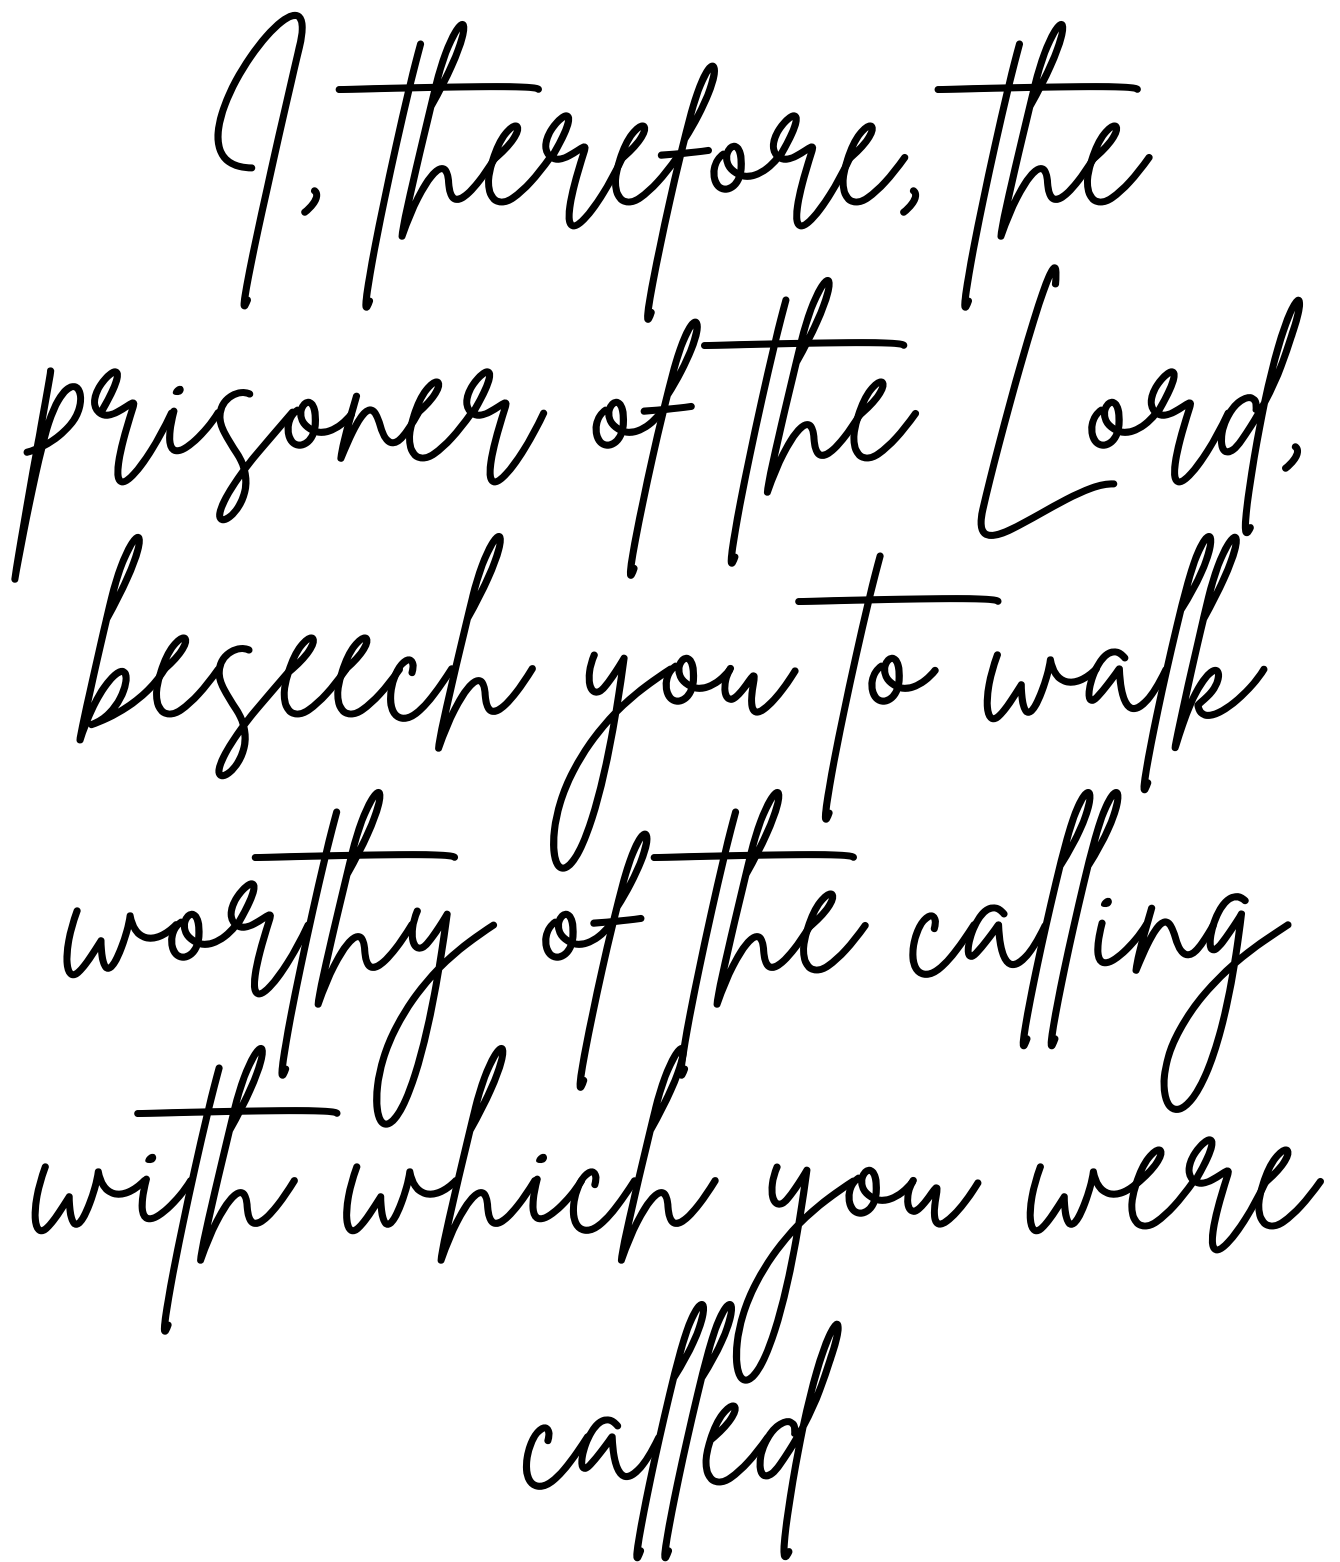 I, therefore, the
prisoner of the Lord,
beseech you to walk
worthy of the calling
with which you were
called